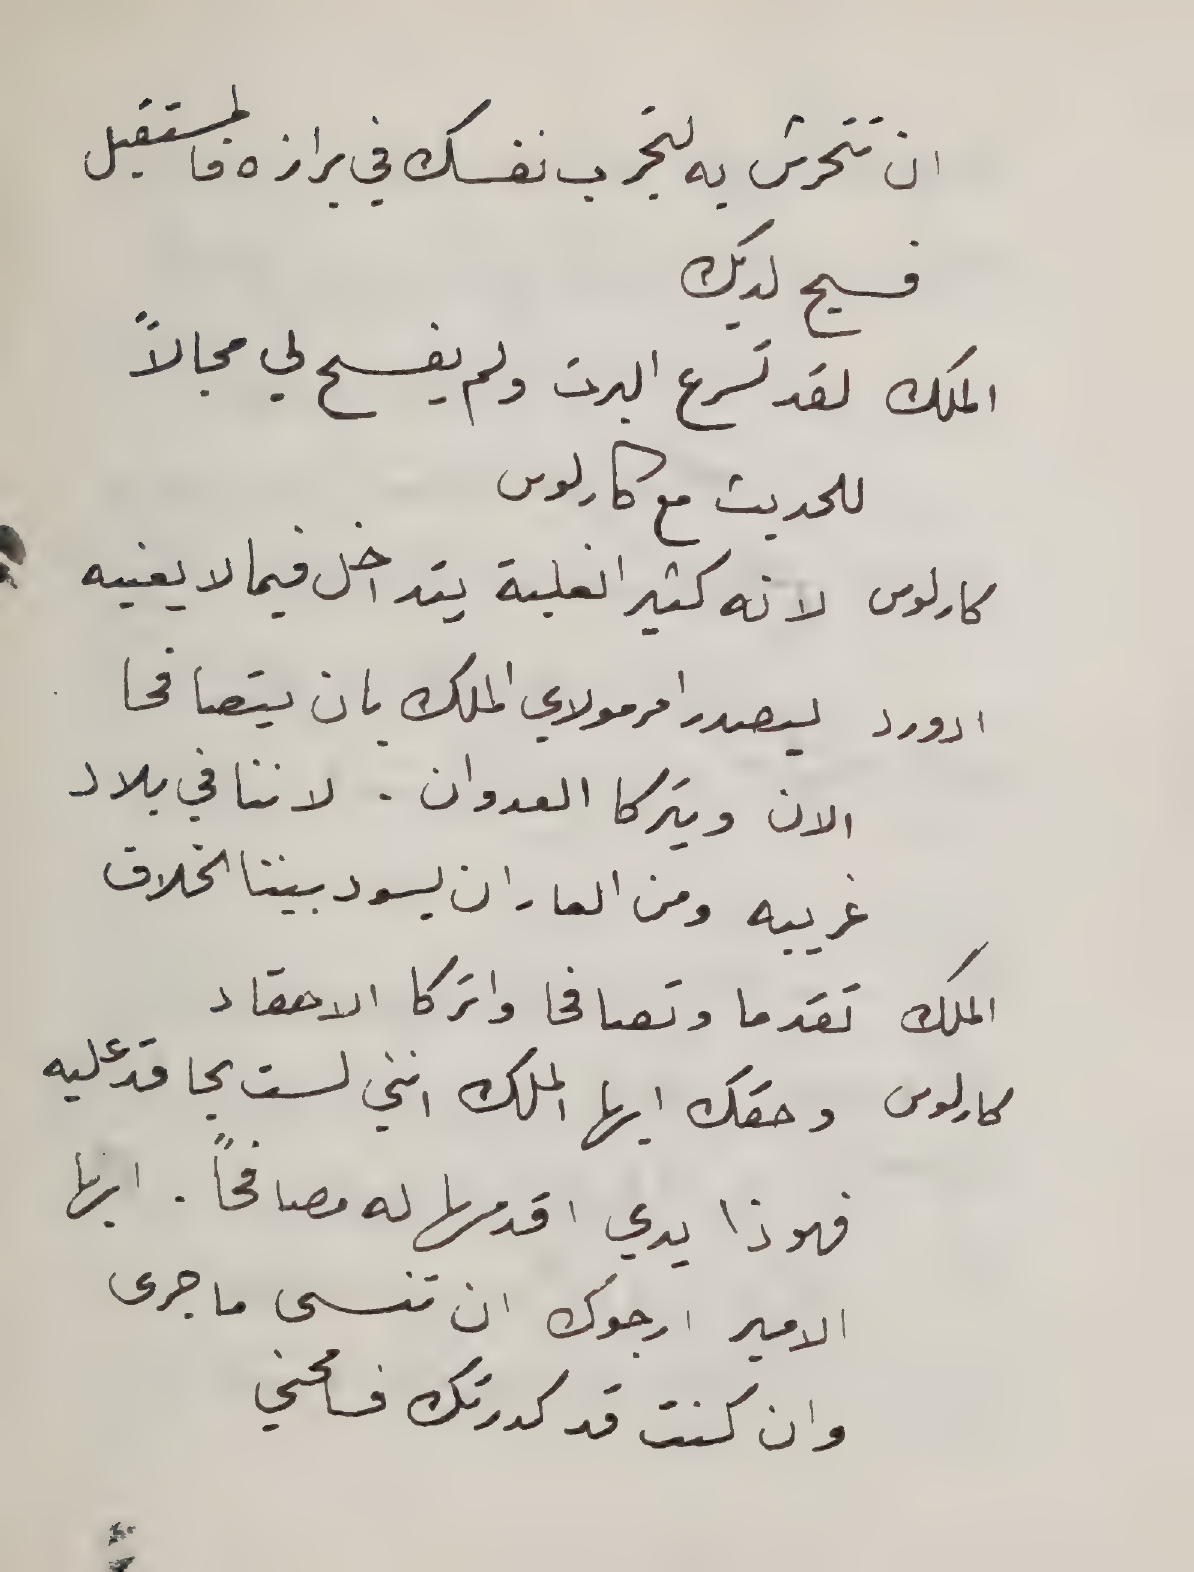 ان تتحرش به لتجرب نفسك في برازه فالمستقبل
فسيح لديك
الملك لقد تسرع البرت ولم يفسح لي مجالاً
للحديث مع كارلوس
كارلوس لانه كثير الغلبة يتداخل فيما لا يعنيه
ادورد ليصدر امر مولاي الملك بان يتصافحا
الان ويتركا العدوان . لاننا في بلاد
غريبه ومن العار ان يسود بيننا الخلاف
الملك تقدما وتصافحا واتركا الاحقاد
كارلوس وحقك ايها الملك انني لست بحاقد عليه
فهوذا يدي اقدمها له مصافحاً . ايها
الامير ارجوك ان تنسى ما جرى
وان كنت قد كدرتك فسامحني